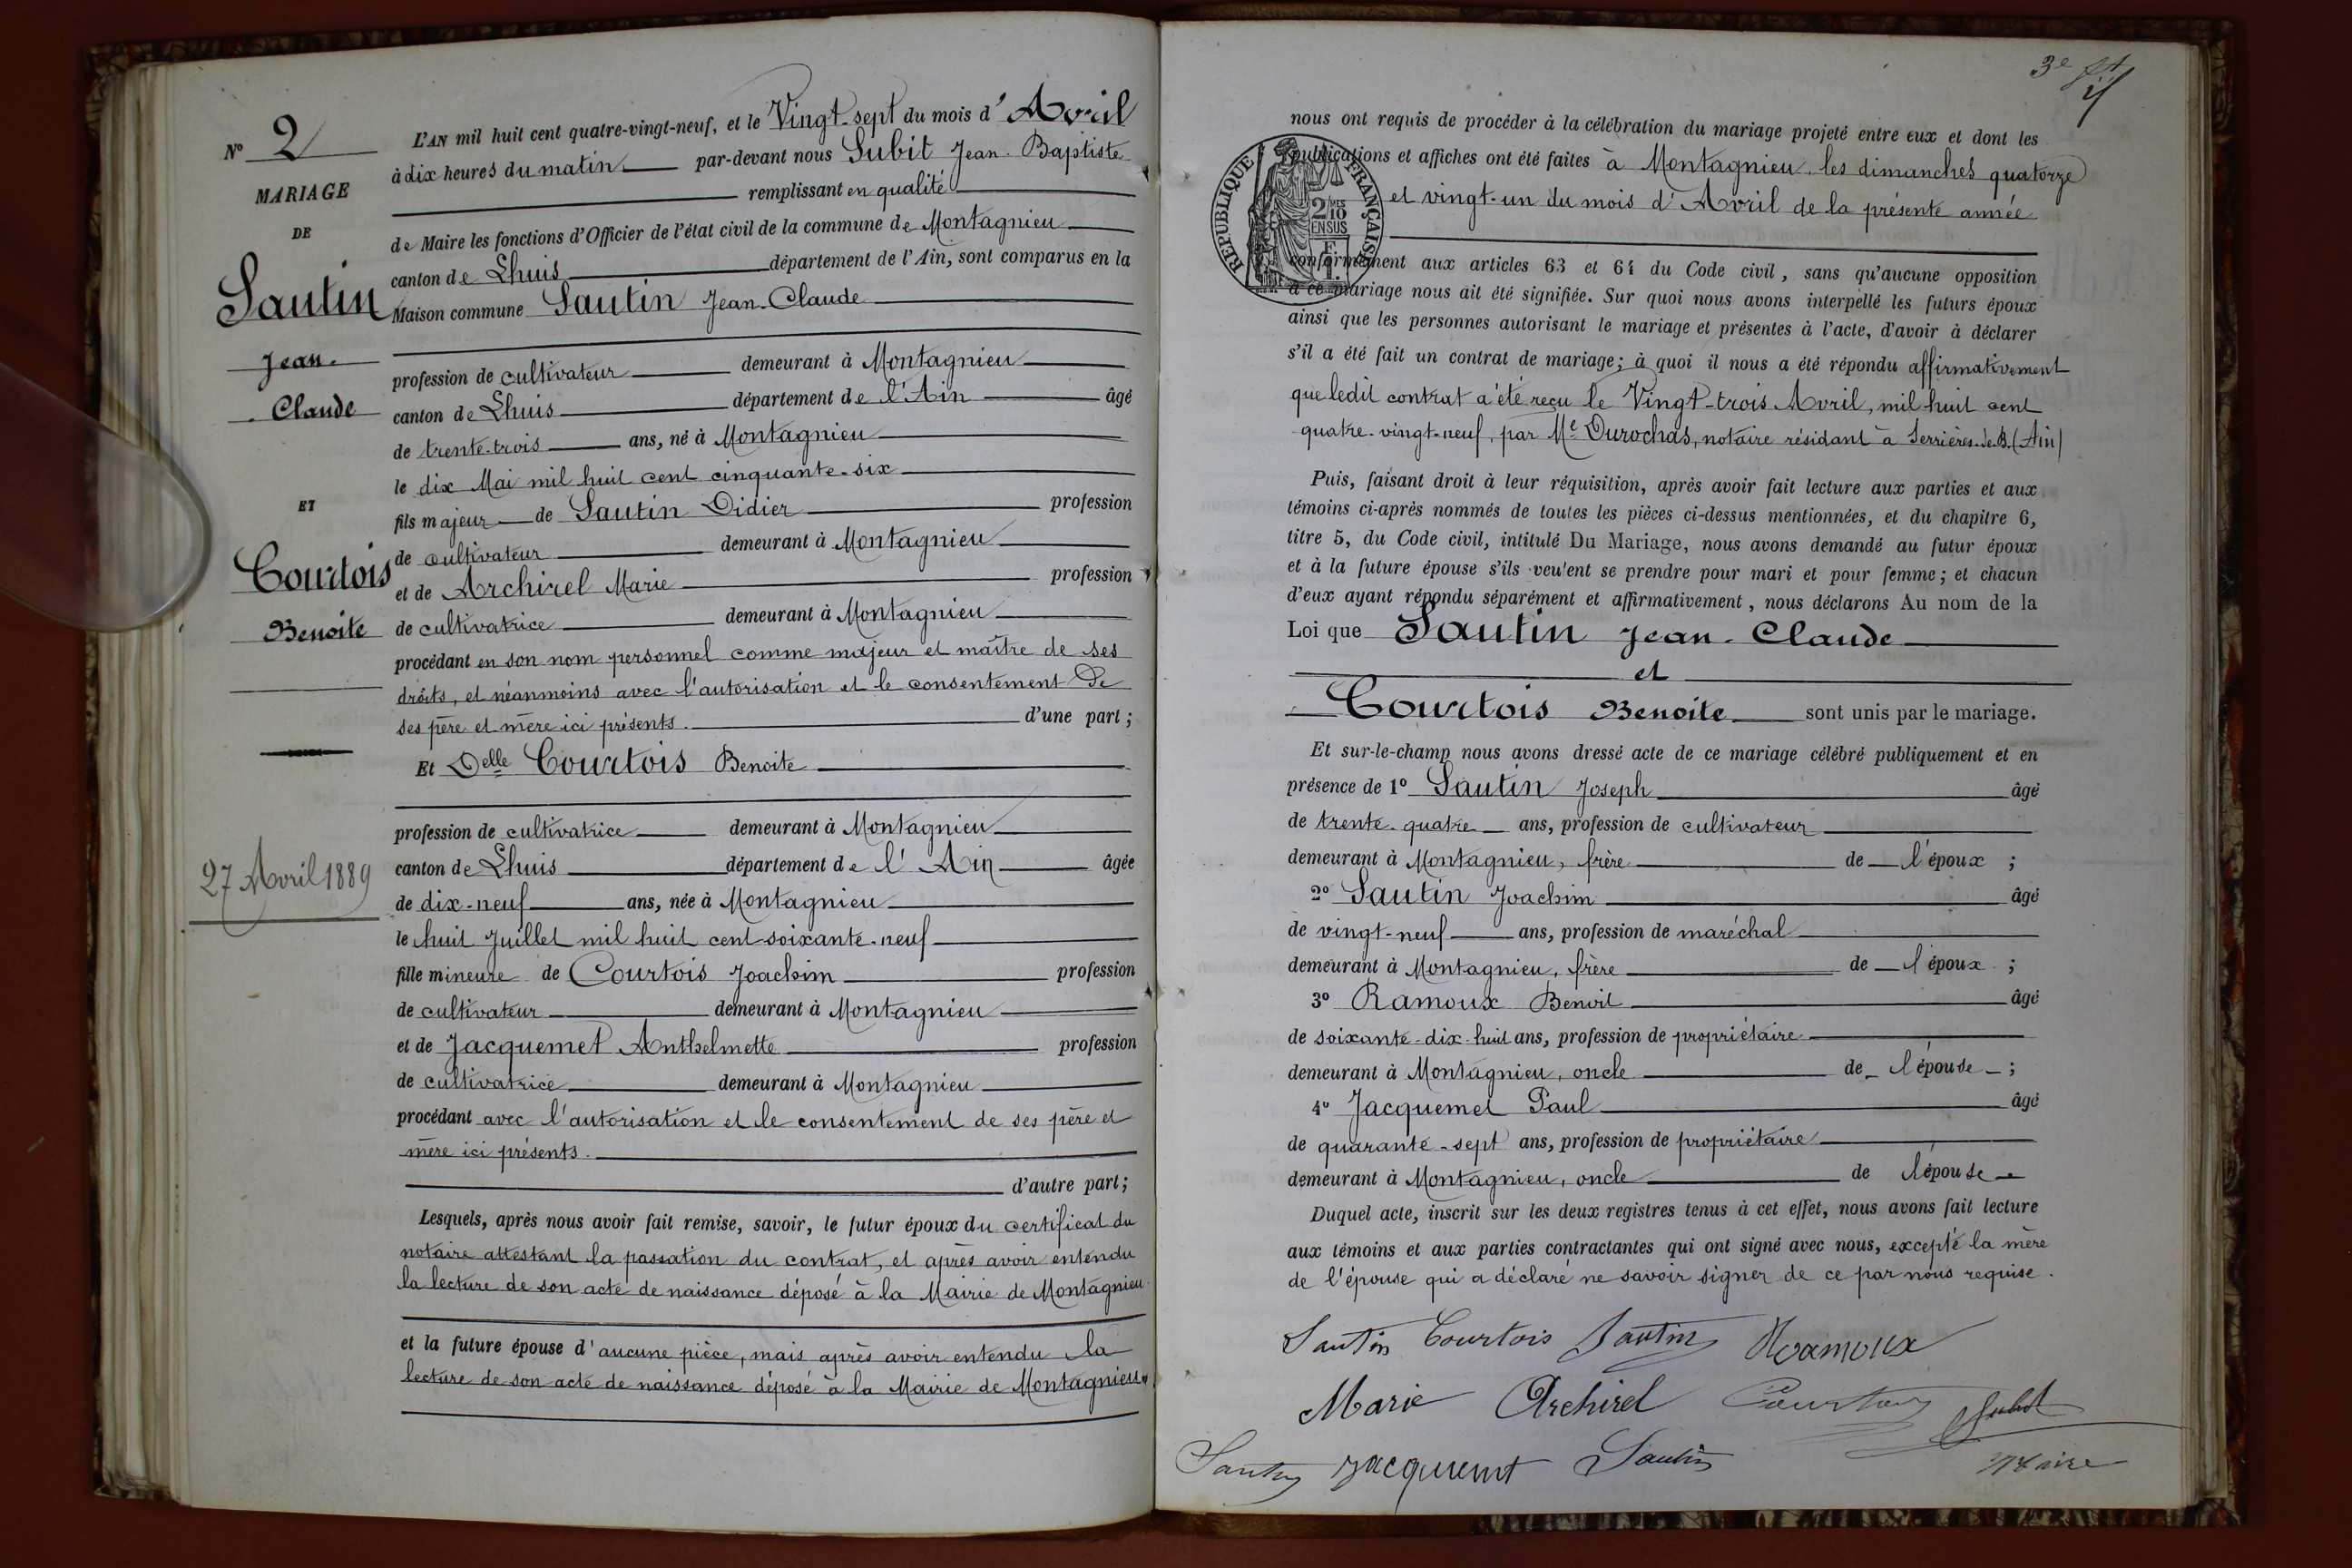 N° 2
MARIAGE
DE
Sautin
Jean-
Claude
ET
Courtois
Benoite
27 Avril 1889
L'AN mil huit cent quatre-vingt-neuf, et le Vingt-sept du mois d'Avril
à dix heures du matin par-devant nous Subit Jean-Baptiste
remplissant en qualité
de Maire les fonctions d'Officier de l'état civil de la commune de Montagnieu
canton de Lhuis département de l'Ain, sont comparus en la
Maison commune Sautin Jean-Claude
profession de cultivateur demeurant à Montagnieu
canton de Lhuis département de l'Ain âgé
de trente-trois ans, né à Montagnieu
le dix Mai mil huit cent cinquante-six
fils majeur de Sautin Didier profession
de cultivateur demeurant à Montagnieu
et de Archirel Marie profession
de cultivatrice demeurant à Montagnieu
procédant en son nom personnel comme majeur et maître de ses
droits, et néanmoins avec l'autorisation et le consentement de
ses père et mère ici présents. d'une part;
Et Delle Courtois Benoite
profession de cultivatrice demeurant à Montagnieu
canton de Lhuis département de l'Ain âgée
de dix-neuf ans, née à Montagnieu
le huit Juillet mil huit cent soixante-neuf
fille mineure de Courtois Joachim profession
de cultivateur demeurant à Montagnieu
et de Jacquemet Anthelmette profession
de cultivatrice demeurant à Montagnieu
procédant avec l'autorisation et le consentement de ses père et
mère ici présents.
d'autre part;
Lesquels, après nous avoir fait remise, savoir, le futur époux du certificat du
notaire attestant la passation du contrat, et après avoir entendu
la lecture de son acte de naissance déposé à la Mairie de Montagnieu
et la future épouse d'aucune pièce, mais après avoir entendu la
lecture de son acte de naissance déposé à la Mairie de Montagnieu
3e
nous ont requis de procéder à la célébration du mariage projeté entre eux et dont les
publications et affiches ont été faites à Montagnieu, les dimanches quatorze
et vingt-un du mois d'Avril de la présente année
REPUBLIQUE FRANÇAISE
2/10
EN SUS
conformément aux articles 63 et 64 du Code civil, sans qu'aucune opposition
à ce mariage nous ait été signifiée. Sur quoi nous avons interpellé les futurs époux
ainsi que les personnes autorisant le mariage et présentes à l'acte, d'avoir à déclarer
s'il a été fait un contrat de mariage; à quoi il nous a été répondu affirmativement
que ledit contrat a été reçu le Vingt-trois Avril, mil huit cent
quatre-vingt-neuf, par Me Durochas, notaire résidant à Serrières-de-B. (Ain)
Puis, faisant droit à leur réquisition, après avoir fait lecture aux parties et aux
témoins ci-après nommés de toutes les pièces ci-dessus mentionnées, et du chapitre 6,
titre 5, du Code civil, intitulé Du Mariage, nous avons demandé au futur époux
et à la future épouse s'ils veulent se prendre pour mari et pour femme; et chacun
d'eux ayant répondu séparément et affirmativement, nous déclarons Au nom de la
Loi que Sautin Jean-Claude
et
Courtois Benoite sont unis par le mariage.
Et sur-le-champ nous avons dressé acte de ce mariage célébré publiquement et en
présence de 1° Sautin Joseph âgé
de trente-quatre ans, profession de cultivateur
demeurant à Montagnieu, frère de l'époux ;
2° Sautin Joachim âgé
de vingt-neuf ans, profession de maréchal
demeurant à Montagnieu, frère de l'époux ;
3° Ramoux Benoit âgé
de soixante-dix-huit ans, profession de propriétaire
demeurant à Montagnieu, oncle de l'épouse ;
4° Jacquemet Paul âgé
de quarante-sept ans, profession de propriétaire
demeurant à Montagnieu, oncle de l'épouse
Duquel acte, inscrit sur les deux registres tenus à cet effet, nous avons fait lecture
aux témoins et aux parties contractantes qui ont signé avec nous, excepté la mère
de l'épouse qui a déclaré ne savoir signer de ce par nous requise.
Sautin Courtois Sautin Ramoux
Marie Archirel Courtois Subit
Sautin Jacquemet Sautin Maire